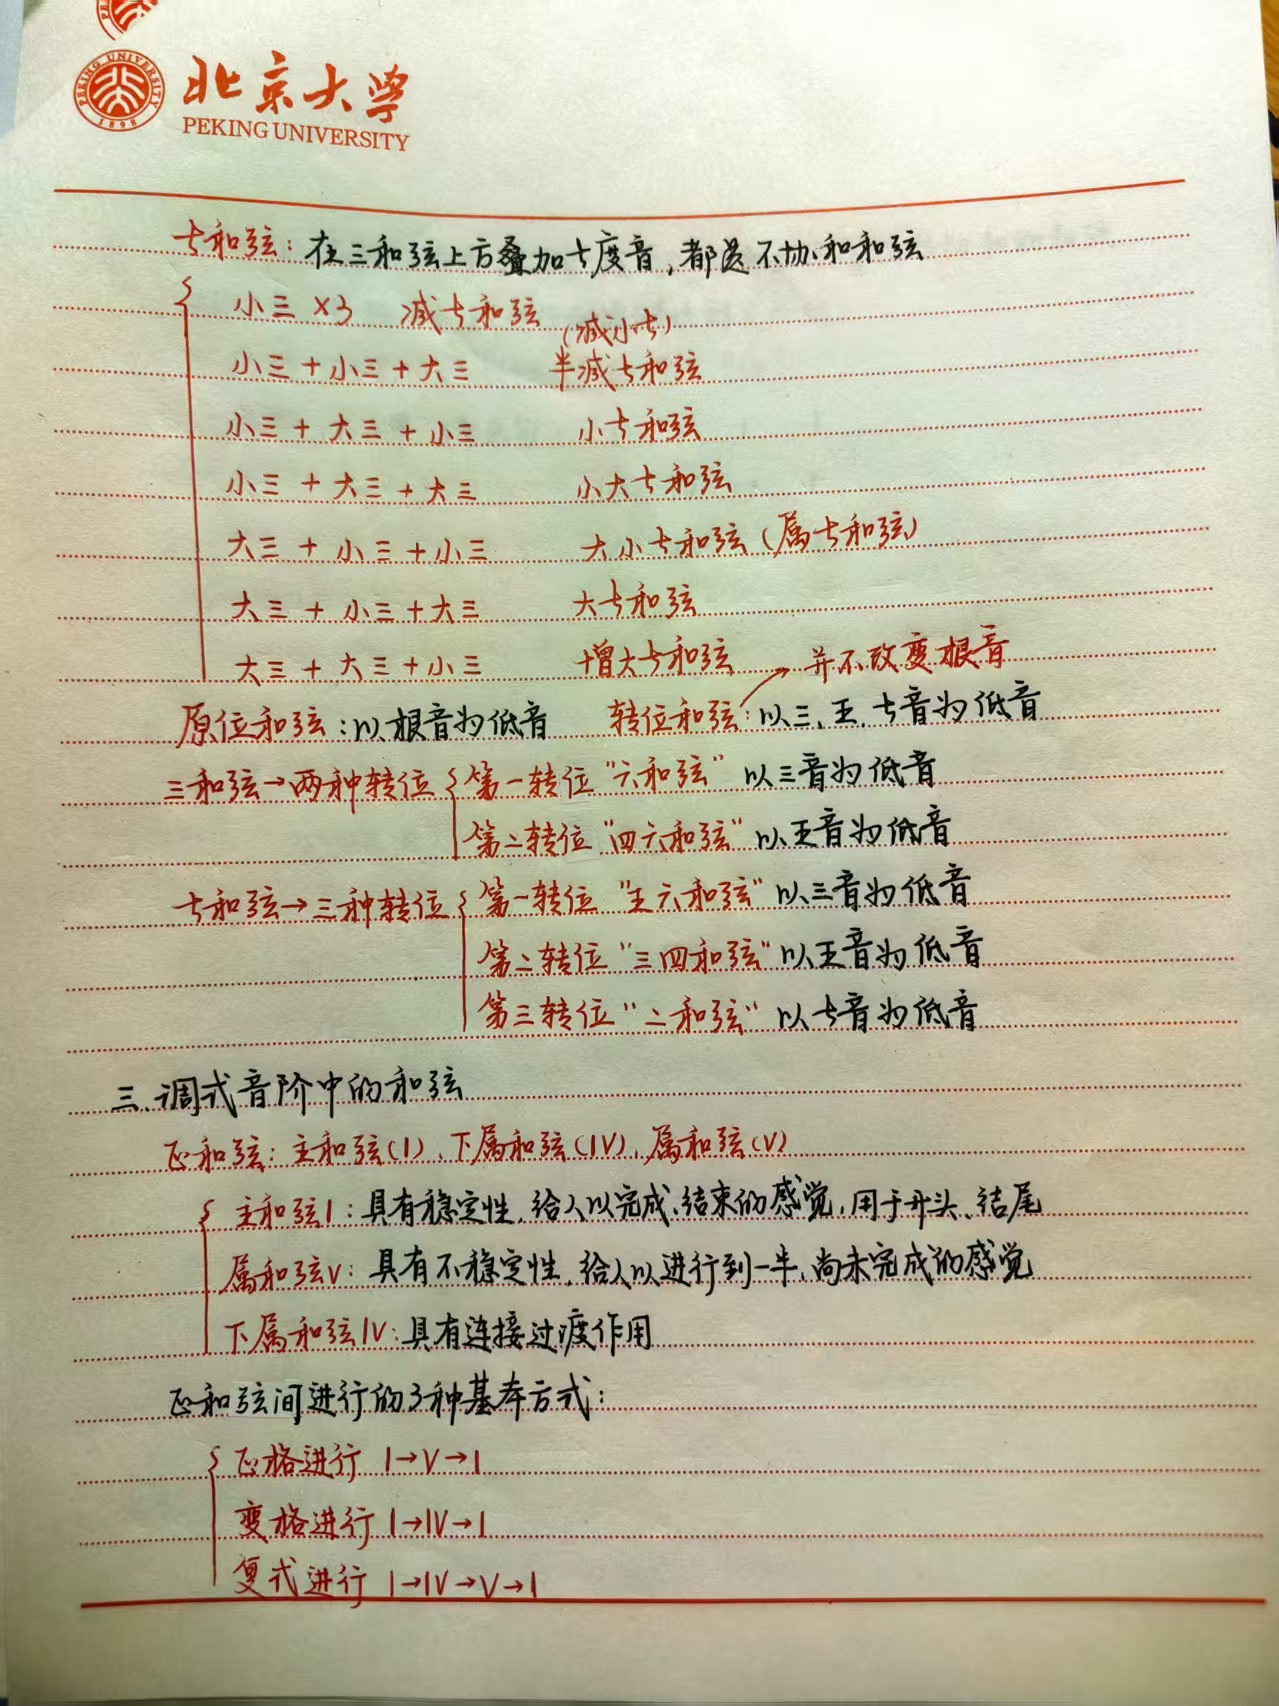 北京大学
PEKING UNIVERSITY
PEKING UNIVERSITY
1898
七和弦：在三和弦上方叠加七度音，都是不协和和弦
小三×3 减七和弦
（减小七）
小三+小三+大三 半减七和弦
小三+大三+小三 小七和弦
小三+大三+大三 小大七和弦
大三+小三+小三 大小七和弦（属七和弦）
大三+小三+大三 大七和弦
大三+大三+小三 增大七和弦 → 并不改变根音
原位和弦：以根音为低音 转位和弦：以三、五、七音为低音
三和弦→两种转位 { 第一转位“六和弦” 以三音为低音
第二转位“四六和弦” 以五音为低音
七和弦→三种转位 { 第一转位“五六和弦” 以三音为低音
第二转位“三四和弦” 以五音为低音
第三转位“二和弦” 以七音为低音
三、调式音阶中的和弦
正和弦：主和弦(I)、下属和弦(IV)、属和弦(V)
主和弦I：具有稳定性，给人以完成、结束的感觉，用于开头、结尾
属和弦V：具有不稳定性，给人以进行到一半、尚未完成的感觉
下属和弦IV：具有连接过渡作用
正和弦间进行的3种基本方式：
正格进行 I→V→I
变格进行 I→IV→I
复式进行 I→IV→V→I